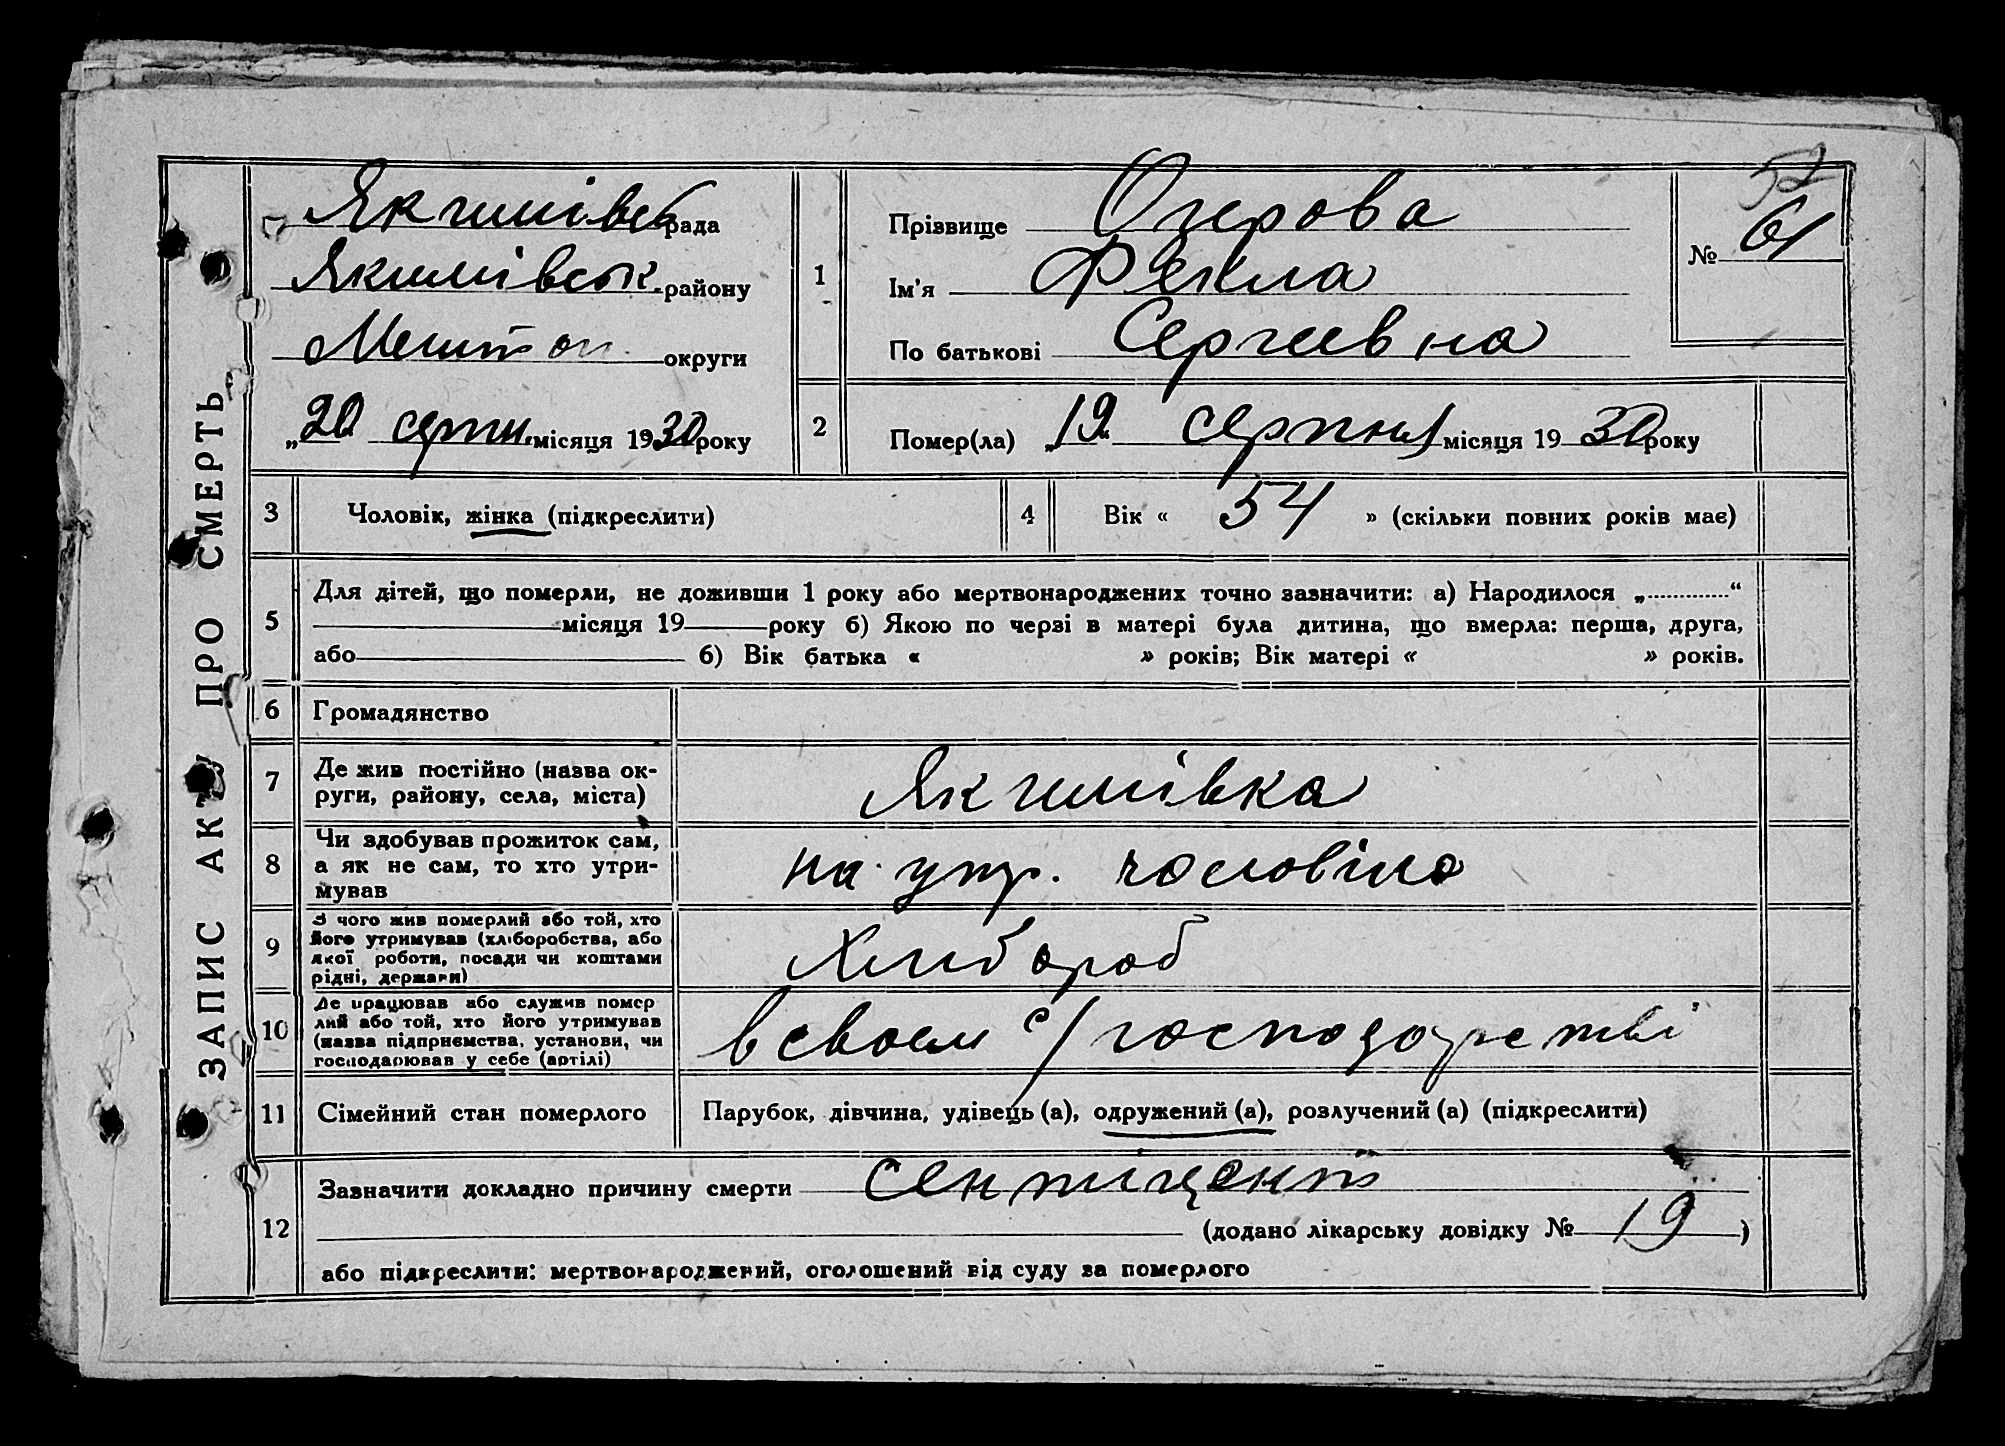 ЗАПИС АКТУ ПРО СМЕРТЬ
Якимівсь рада
Якимівськ. району
Мелітоп. округи
„20 серпн. місяця 1930 року
1
Прізвище Озерова
Ім'я Фекла
По батькові Сергеевна
52
№ 61
2
Помер(ла) „19" серпня місяця 19 30 року
3 Чоловік, жінка (підкреслити)
4 Вік « 54 » (скільки повних років має)
5
Для дітей, що померли, не доживши 1 року або мертвонароджених точно зазначити: а) Народилося „............“
місяця 19 року б) Якою по черзі в матері була дитина, що вмерла: перша, друга,
або б) Вік батька « » років; Вік матері « » років.
6 Громадянство
7
Де жив постійно (назва ок-
руги, району, села, міста)
Якимівка
8
Чи здобував прожиток сам,
а як не сам, то хто утри-
мував
на утр. чоловіка
9
З чого жив померлий або той, хто
його утримував (хліборобства, або
якої роботи, посади чи коштами
рідні, держави)
Хлибороб
10
Де працював або служив помер
лий або той, хто його утримував
(назва підприємства, установи, чи
господарював у себе (артілі)
в своем с/господарстві
11 Сімейний стан померлого
Парубок, дівчина, удівець (а), одружений (а), розлучений (а) (підкреслити)
12
Зазначити докладно причину смерти
(додано лікарську довідку № 19 )
або підкреслити: мертвонароджений, оголошений від суду за померлого